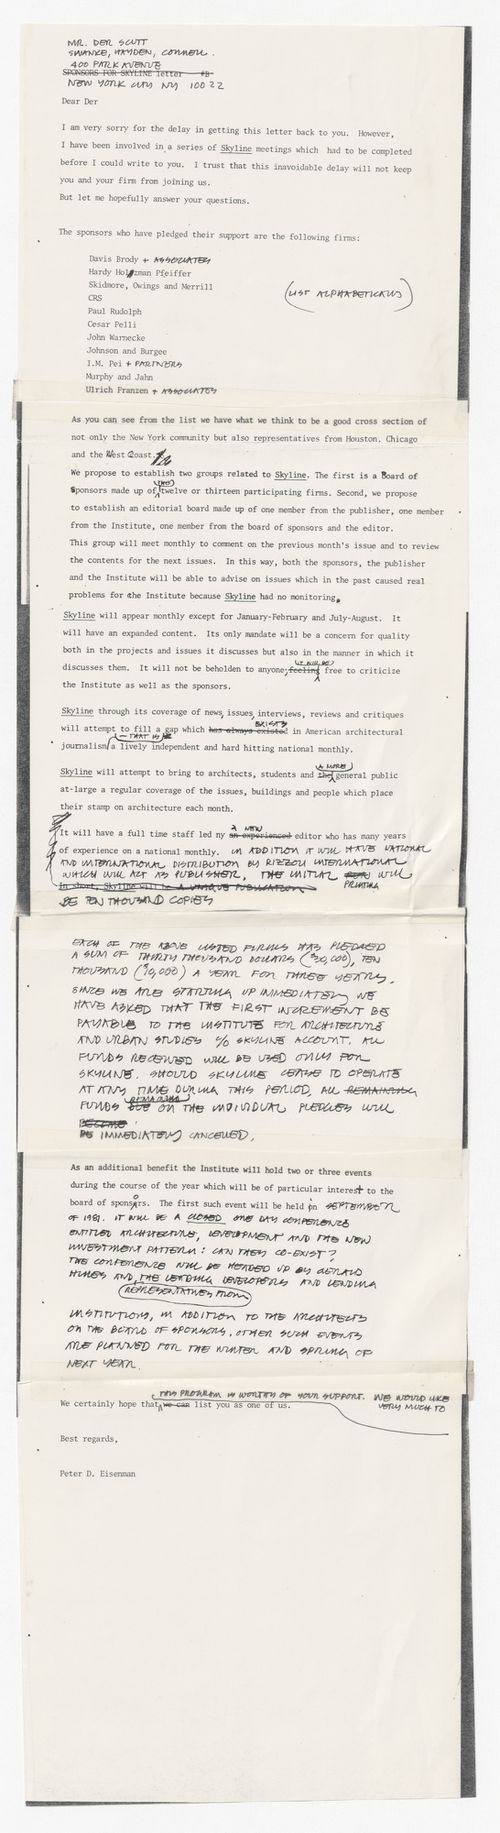 MR. DER SCUTT
SWANKE, HAYDEN, CONNELL.
400 PARK AVENUE
SPONSORS FOR SKYLINE letter #B
NEW YORK CITY NY 10022
Dear Der
I am very sorry for the delay in getting this letter back to you. However,
I have been involved in a series of Skyline meetings which had to be completed
before I could write to you. I trust that this inavoidable delay will not keep
you and your firm from joining us.
But let me hopefully answer your questions.
The sponsors who have pledged their support are the following firms:
Davis Brody + ASSOCIATES
Hardy Holzman Pfeiffer
Skidmore, Owings and Merrill
(LIST ALPHABETICALLY)
CRS
Paul Rudolph
Cesar Pelli
John Warnecke
Johnson and Burgee
I.M. Pei + PARTNERS
Murphy and Jahn
Ulrich Franzen + ASSOCIATES
As you can see from the list we have what we think to be a good cross section of
not only the New York community but also representatives from Houston, Chicago
and the West Coast.
We propose to establish two groups related to Skyline. The first is a Board of
Sponsors made up of (TWO) twelve or thirteen participating firms. Second, we propose
to establish an editorial board made up of one member from the publisher, one member
from the Institute, one member from the board of sponsors and the editor.
This group will meet monthly to comment on the previous month's issue and to review
the contents for the next issues. In this way, both the sponsors, the publisher
and the Institute will be able to advise on issues which in the past caused real
problems for the Institute because Skyline had no monitoring.
Skyline will appear monthly except for January-February and July-August. It
will have an expanded content. Its only mandate will be a concern for quality
both in the projects and issues it discusses but also in the manner in which it
discusses them. It will not be beholden to anyone, feeling IT WILL BE free to criticize
the Institute as well as the sponsors.
Skyline through its coverage of news, issues, interviews, reviews and critiques
will attempt to fill a gap which has always existed EXISTS in American architectural
journalism - THAT IS a lively independent and hard hitting national monthly.
Skyline will attempt to bring to architects, students and the A MORE general public
at-large a regular coverage of the issues, buildings and people which place
their stamp on architecture each month.
It will have a full time staff led ny an experienced A NEW editor who has many years
of experience on a national monthly. IN ADDITION IT WILL HAVE NATIONAL
AND INTERNATIONAL DISTRIBUTION BY RIZZOLI INTERNATIONAL
WHICH WILL ACT AS PUBLISHER, THE INITIAL RUN PRINTING WILL
In short, Skyline will be A UNIQUE PUBLICATION
BE TEN THOUSAND COPIES
EACH OF THE ABOVE LISTED FIRMS HAS PLEDGED
A SUM OF THIRTY THOUSAND DOLLARS ($30,000), TEN
THOUSAND ($10,000) A YEAR FOR THREE YEARS.
SINCE WE ARE STARTING UP IMMEDIATELY WE
HAVE ASKED THAT THE FIRST INCREMENT BE
PAYABLE TO THE INSTITUTE FOR ARCHITECTURE
AND URBAN STUDIES c/o SKYLINE ACCOUNT. ALL
FUNDS RECEIVED WILL BE USED ONLY FOR
SKYLINE. SHOULD SKYLINE CEASE TO OPERATE
AT ANY TIME DURING THIS PERIOD, ALL REMAINING
FUNDS DUE REMAINING ON THE INDIVIDUAL PLEDGES WILL
BECOME
BE IMMEDIATELY CANCELLED.
As an additional benefit the Institute will hold two or three events
during the course of the year which will be of particular interest to the
board of sponsors. The first such event will be held in SEPTEMBER
OF 1981. IT WILL BE A CLOSED ONE DAY CONFERENCE
ENTITLED ARCHITECTURE, DEVELOPMENT AND THE NEW
INVESTMENT PATTERN: CAN THEY CO-EXIST?
THE CONFERENCE WILL BE HEADED UP BY GERALD
HINES AND THE LEADING DEVELOPERS AND LENDING
REPRESENTATIVES FROM
INSTITUTIONS, IN ADDITION TO THE ARCHITECTS
ON THE BOARD OF SPONSORS. OTHER SUCH EVENTS
ARE PLANNED FOR THE WINTER AND SPRING OF
NEXT YEAR.
THIS PROGRAM IS WORTHY OF YOUR SUPPORT. WE WOULD LIKE
VERY MUCH TO
We certainly hope that we can list you as one of us.
Best regards,
Peter D. Eisenman